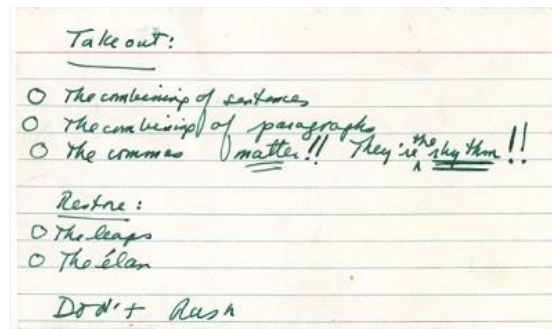 Take out:
O The combining of sentences
O The combining of paragraphs
O The commas matter!! They're the rhythm!!
Restore:
O The leaps
O The élan
DON'T Rush